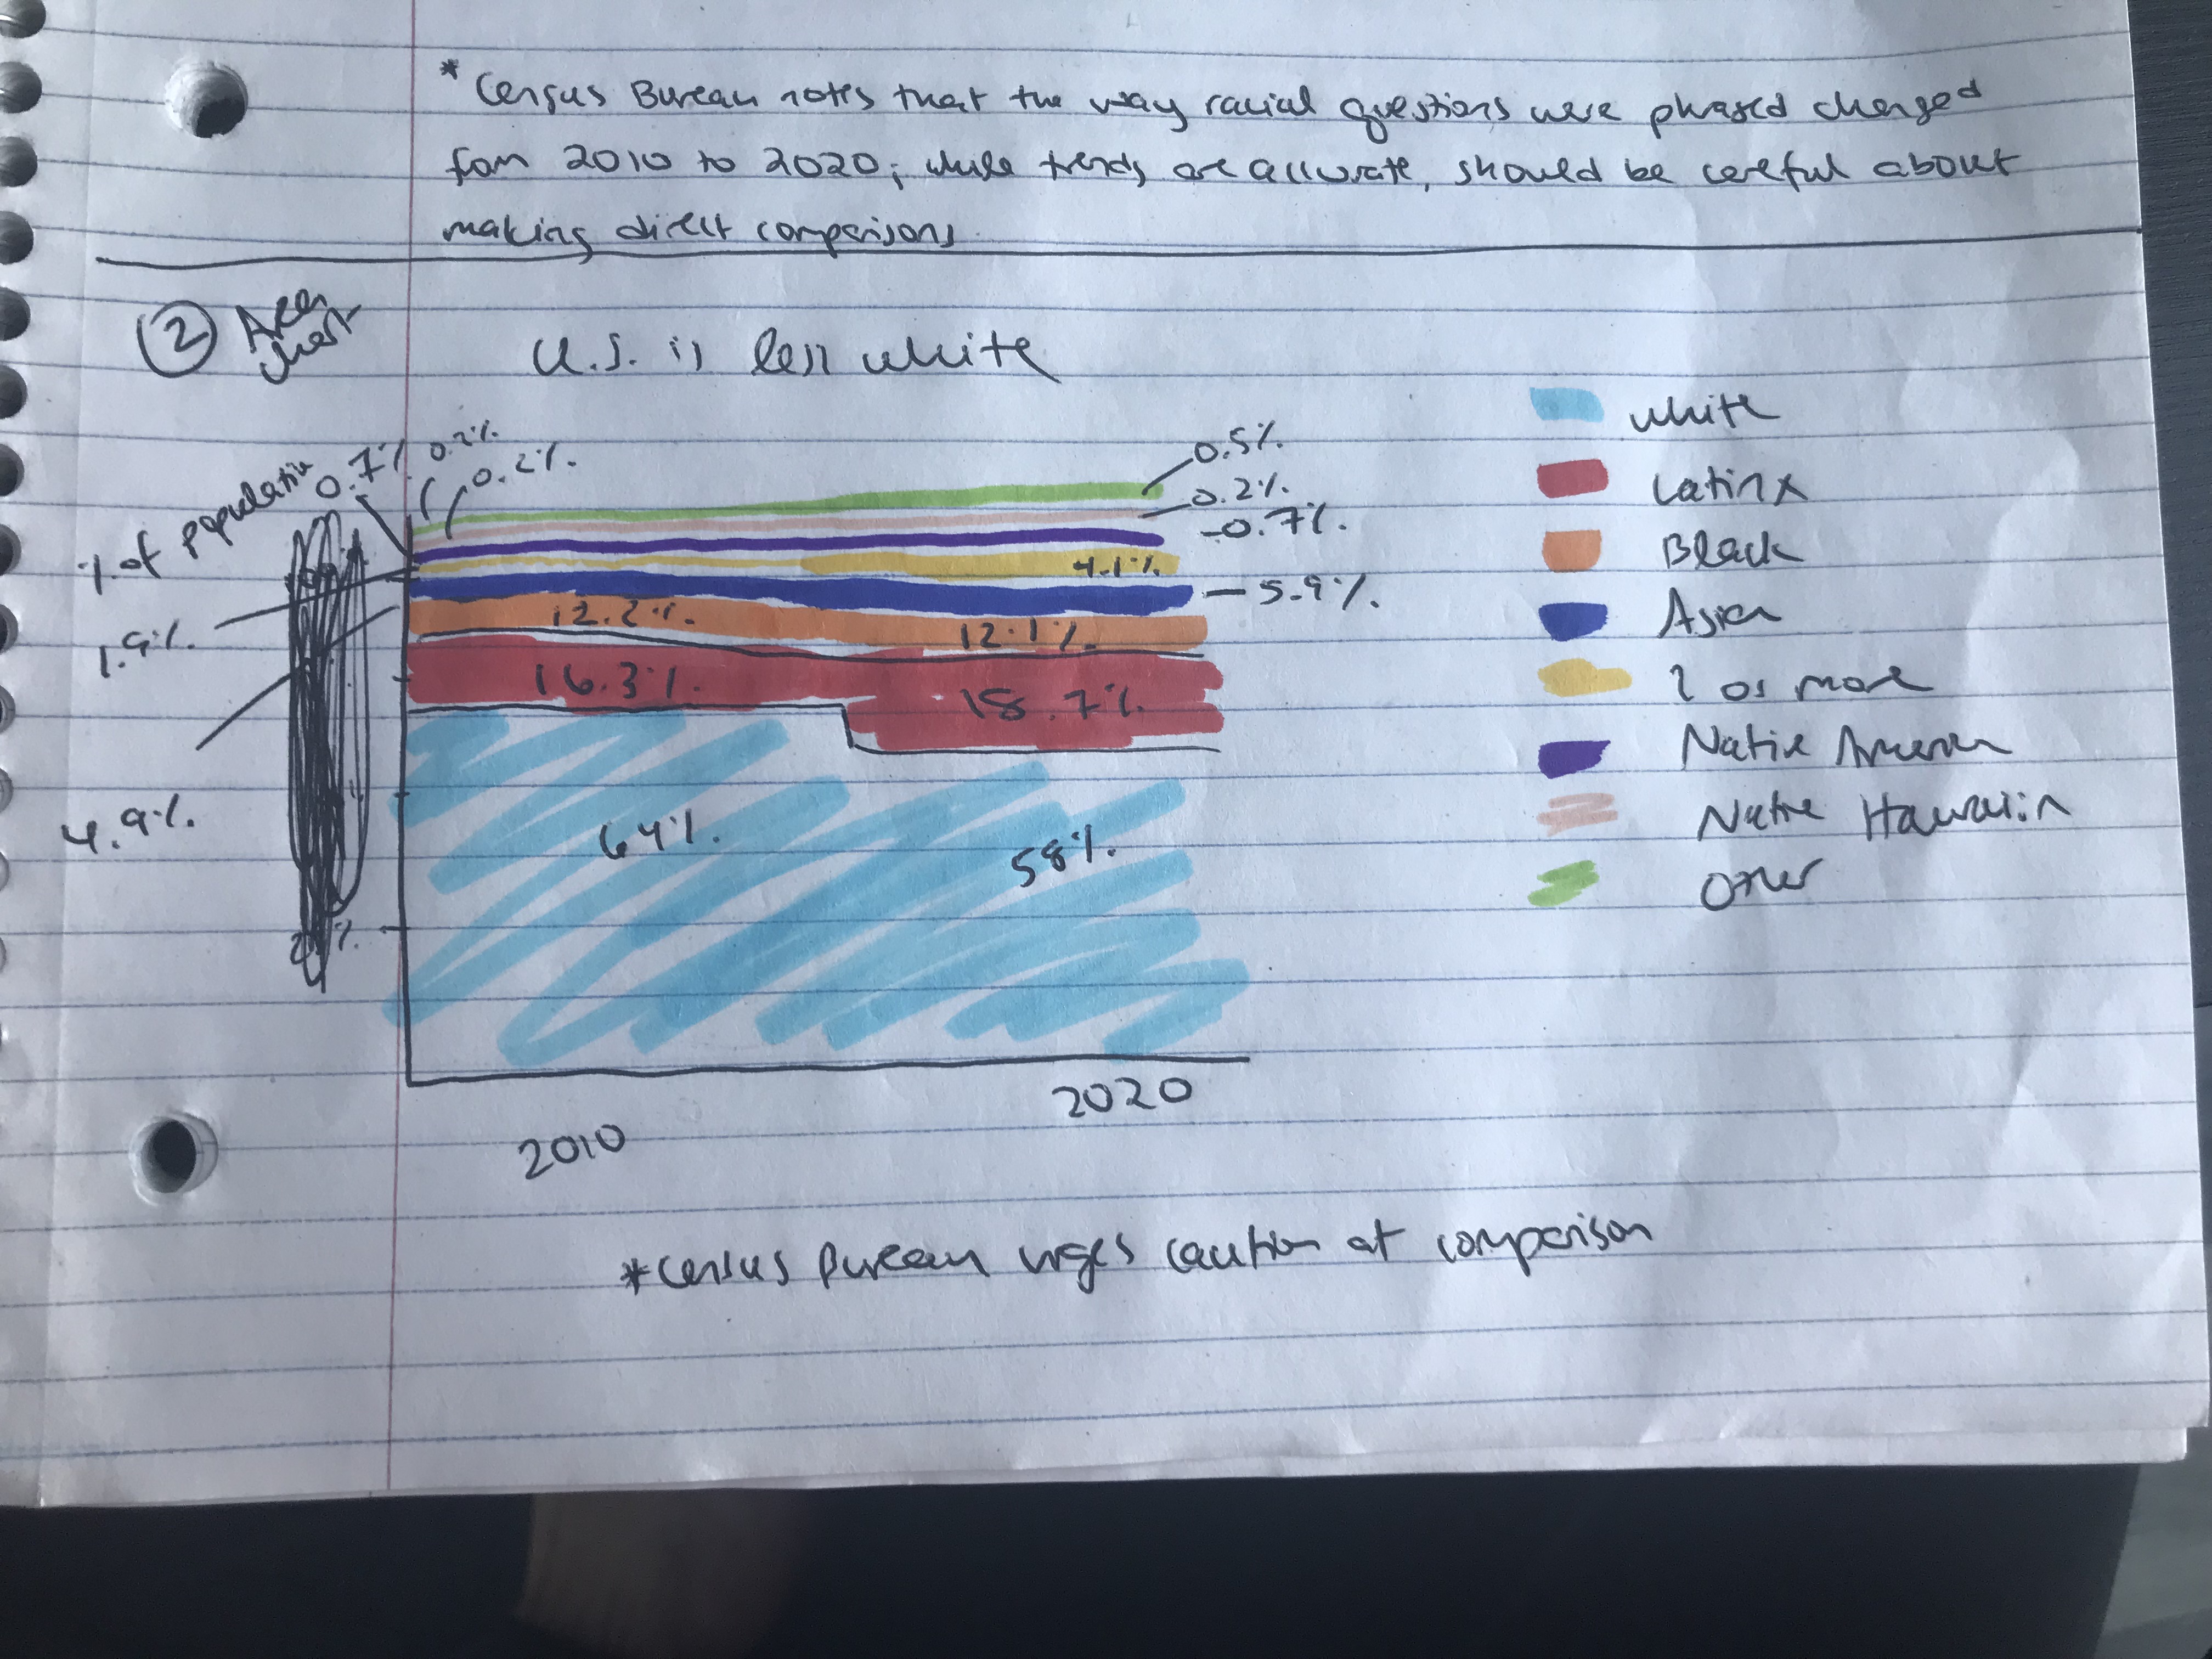 * Census Bureau notes that the way racial questions were phased changed
from 2010 to 2020; while trends are accurate, should be careful about
making direct comparisons
② Area chart
U.S. is less white
% of population
0.7%
0.2%
0.2%
1.9%
4.9%
12.2%
16.3%
64%
0.5%
0.2%
0.7%
4.1%
5.9%
12.1%
18.7%
58%
2010
2020
white
Latinx
Black
Asian
2 or more
Native American
Native Hawaiin
Other
*Census Bureau urges caution at comparison